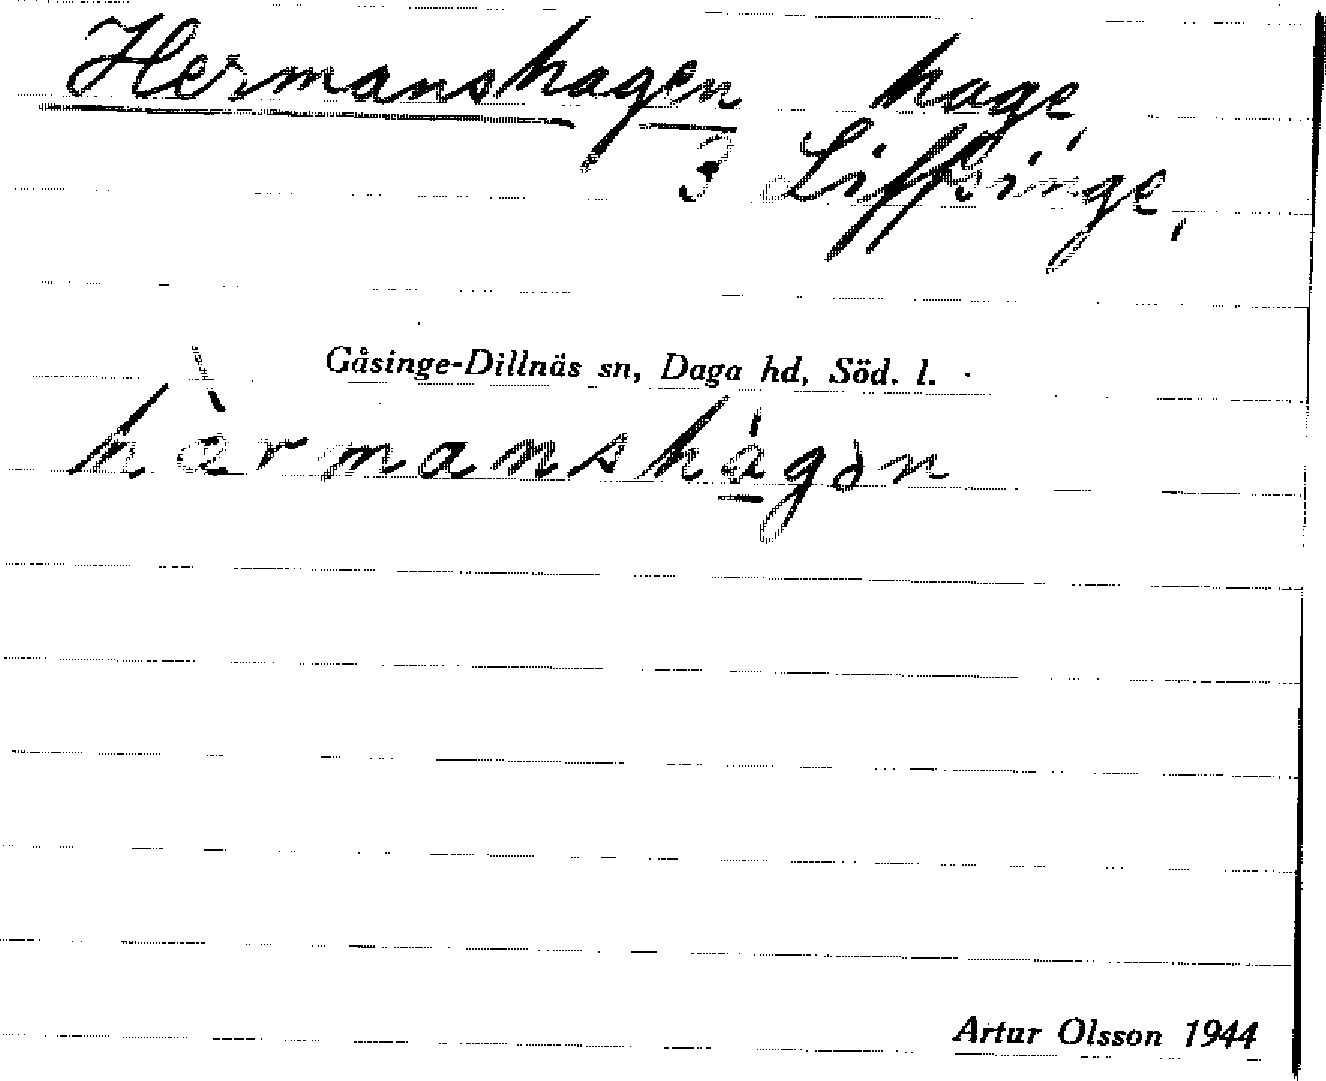 Hermanshagen hage,
3 Liffsinge,
Gåsinge-Dillnäs sn, Daga hd, Söd. l.
hàrmanshágən
Artur Olsson 1944